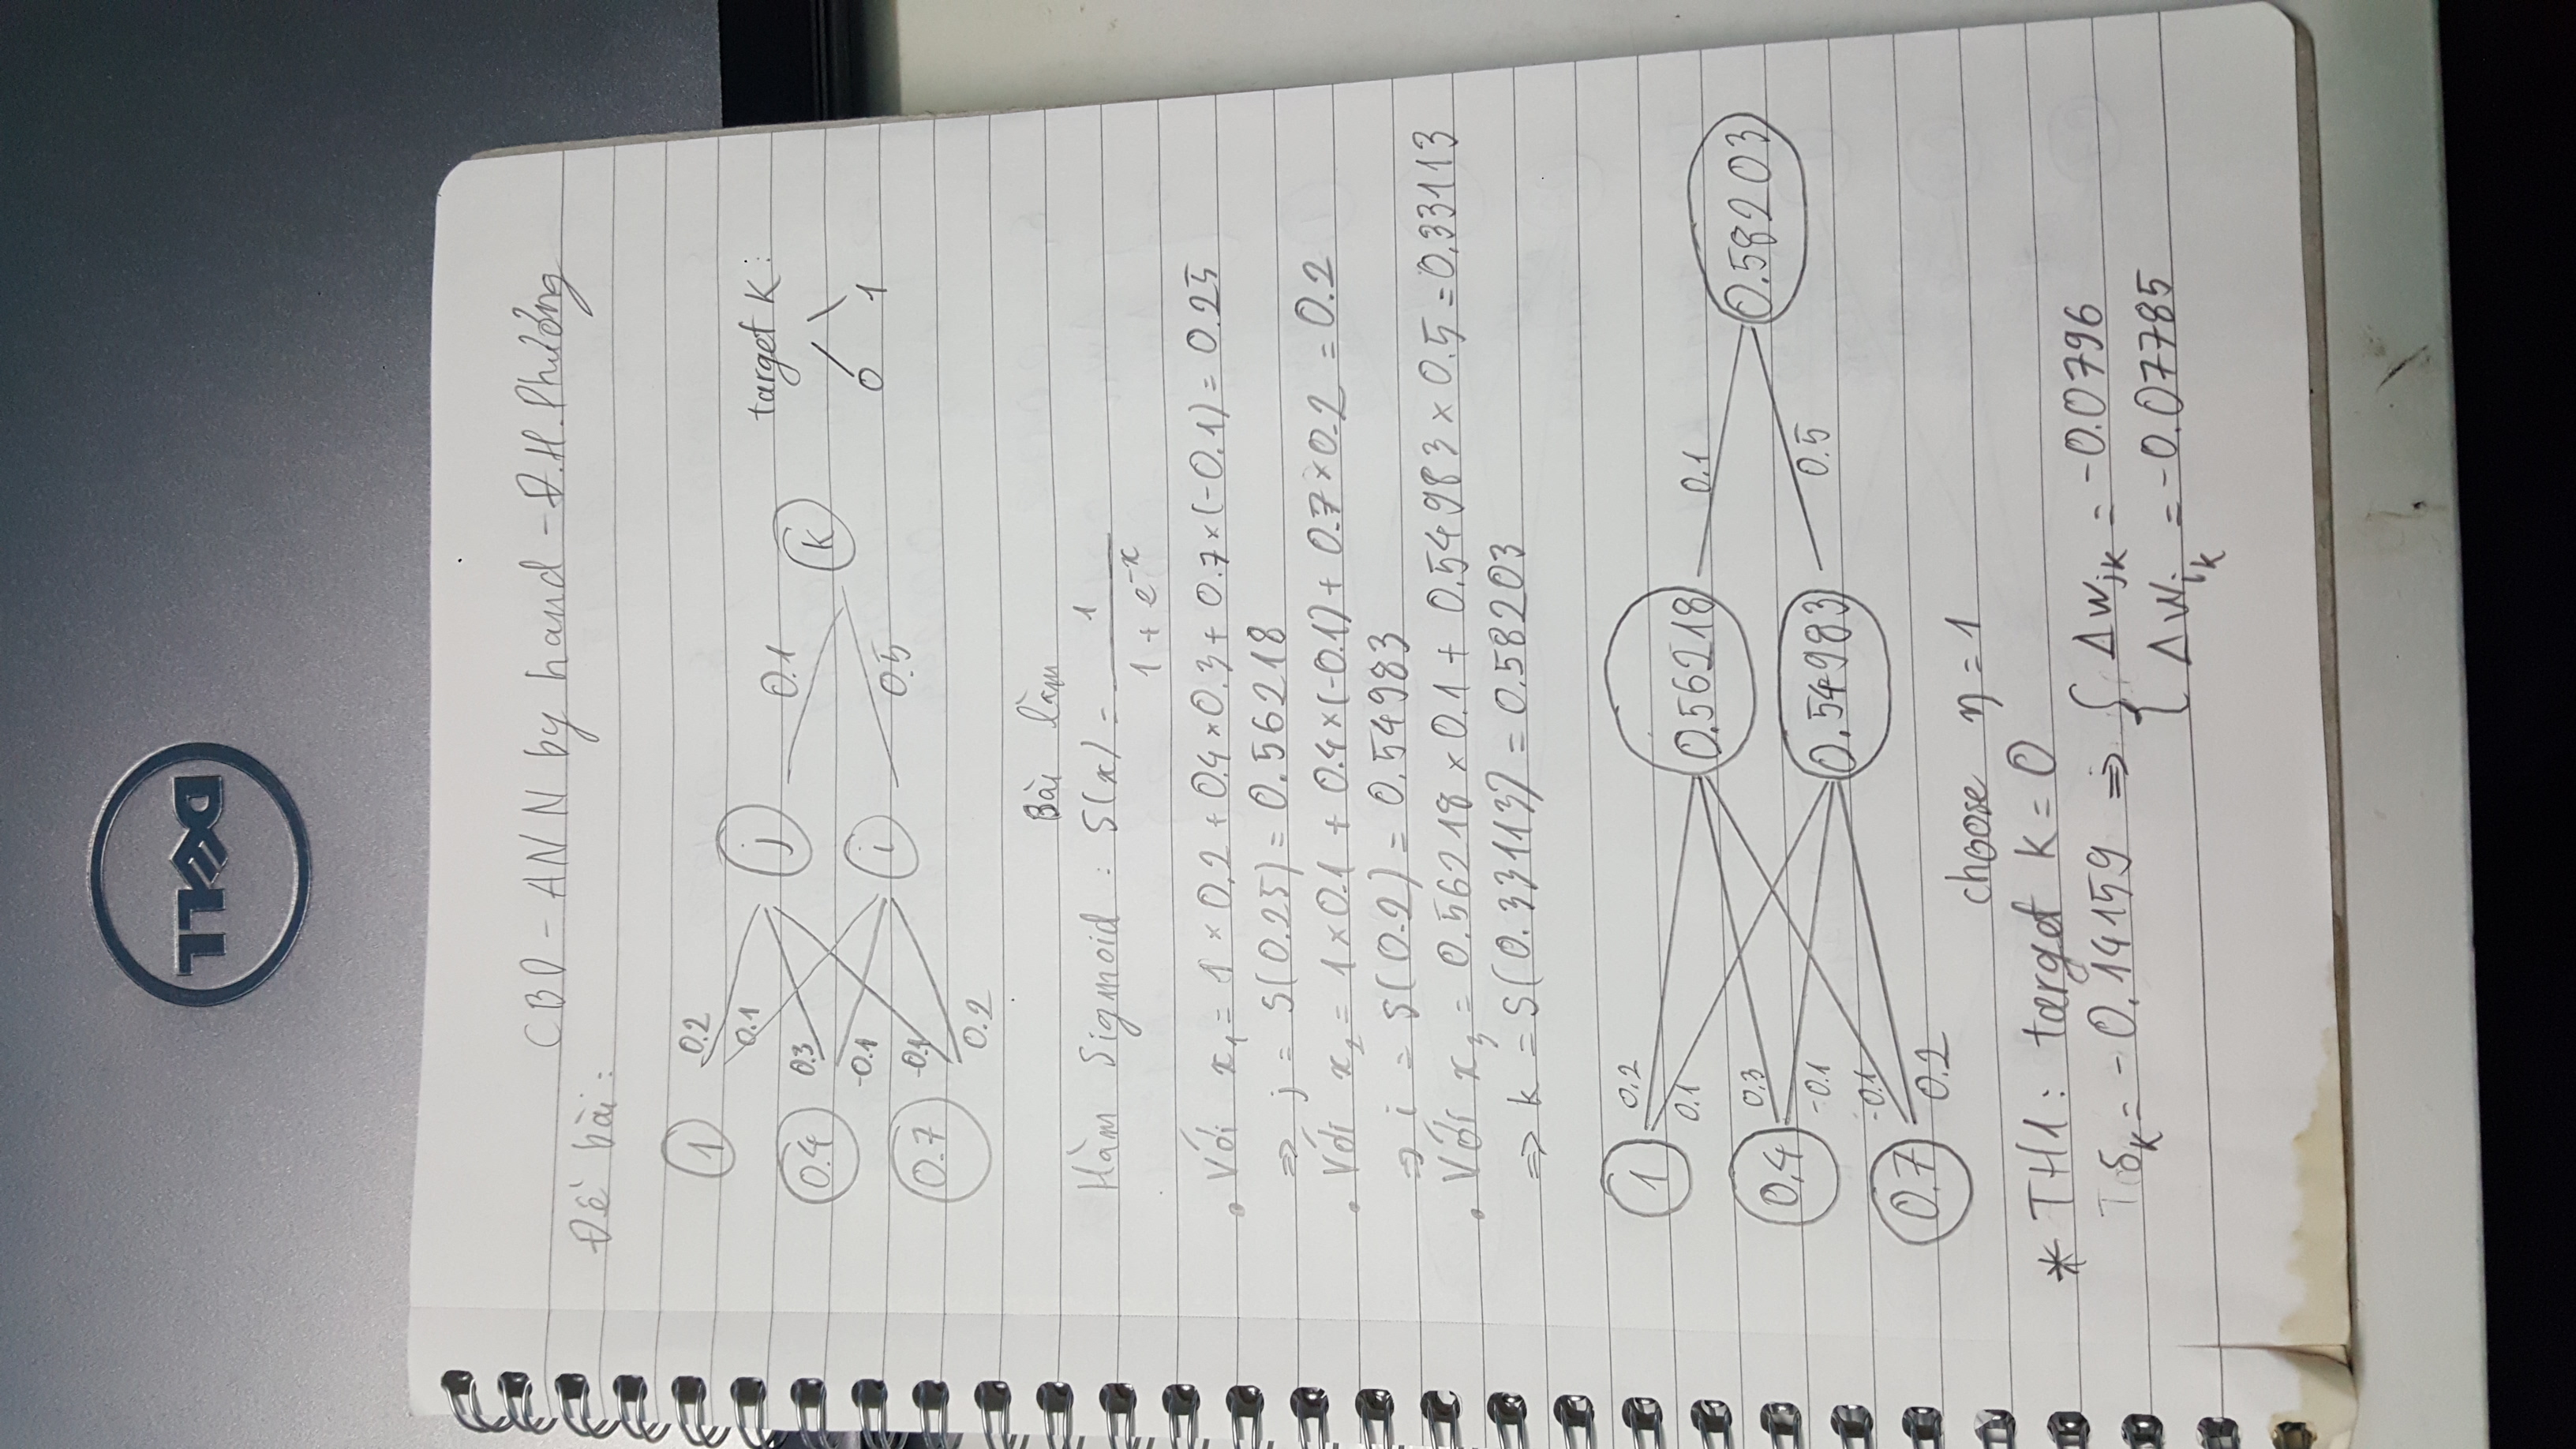 DELL
CBD - ANN by hand - Đ.H.Phương
Đề bài:
1 0.2
0.1 j 0.1 target k:
0.4 0.3 k
-0.1 i 0.5 0 1
0.7 -0.1
0.2
Bài làm
Hàm Sigmoid : S(x) = 1 / (1 + e^-x)
. Với x₁ = 1 × 0.2 + 0.4 × 0.3 + 0.7 × (-0.1) = 0.25
⇒ j = S(0.25) = 0.56218
. Với x₂ = 1 × 0.1 + 0.4 × (-0.1) + 0.7 × 0.2 = 0.2
⇒ i = S(0.2) = 0.54983
. Với x₃ = 0.56218 × 0.1 + 0.54983 × 0.5 = 0.33113
⇒ k = S(0.33113) = 0.58203
1 0.2
0.1 0.56218 0.1
0.4 0.3 0.58203
-0.1 0.54983 0.5
-0.1
0.7 0.2
choose η = 1
* TH1: target k = 0
δₖ = -0.14159 ⇒ { Δwⱼₖ = -0.0796
Δwᵢₖ = -0.07785